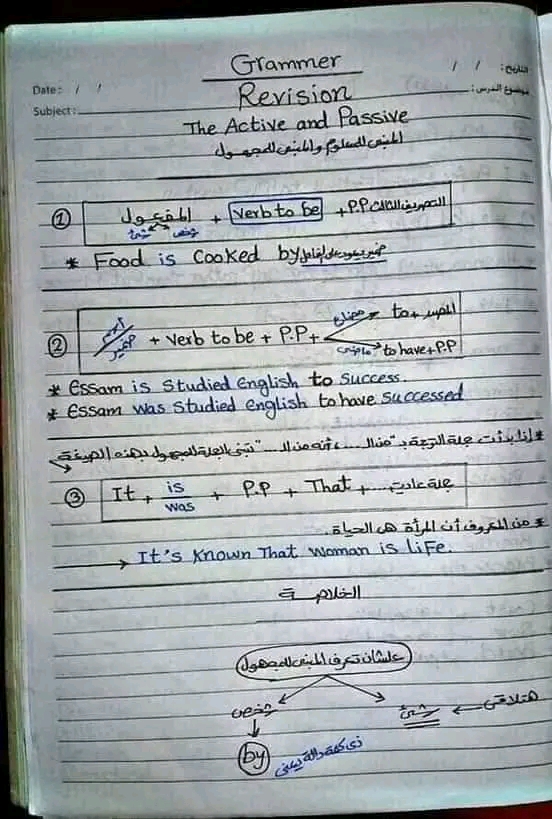 Grammer
Date: / /
/ / التاريخ:
Revision
Subject:
موضوع الدرس:
The Active and Passive
المبنى للمعلوم والمبنى للمجهول
① المفعول + verb to be + P.P التصريف الثالث
شخص شئ
* Food is Cooked by ضمير يعود على الفاعل
② اسم ضمير + verb to be + P.P +
مضارع to + المصدر
ماضى to have + P.P
* Essam is Studied English to Success.
* Essam was Studied English to have Successed
* إذا بدأت جملة الترجمة بـ "من الـ ..... ، أنه من الـ ....." تبنى الجملة للمجهول بهذه الصيغة
③ It + is was + P.P + That + .... جملة عادية
* من المعروف أن المرأة هى الحياة.
It's Known That woman is life.
الخلاصة
علشان تعرف المبنى للمجهول
هتلاقى شئ شخص
by